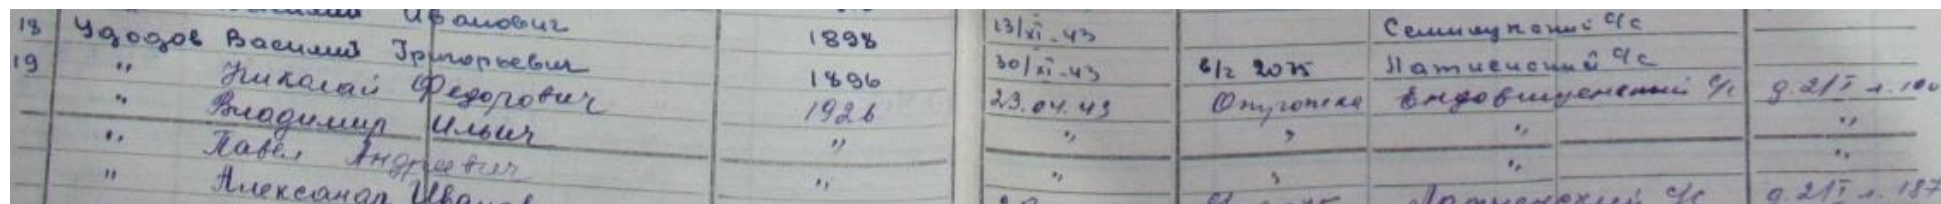 Иванович
18 Удодов Василий Григорьевич 1898 13/XI-43 Семилукский с/с
19 " Николай Федорович 1896 30/XI-43 б/г 2075 Латненский с/с
" Владимир Ильич 1926 23.04.43 Отрожка Ендовищенский с/с д.2/I л.180
" Павел Андреевич " " " " "
" Александр " " " " "
Латненский с/с д.2/I л.187